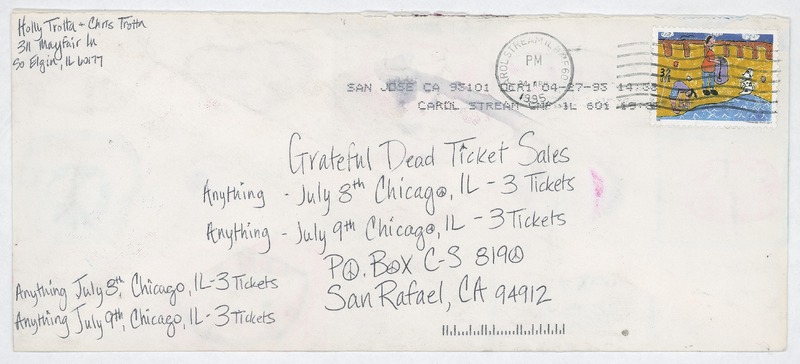 Holly Trotta + Chris Trotta
311 Mayfair Ln
So Elgin, IL 60177
CAROL STREAM IL PME 60
PM
24 APR
1995
32
SAN JOSE CA 95101 OCR1 04-27-95 14:38
CAROL STREAM GMF IL 601
Grateful Dead Ticket Sales
Anything - July 8th Chicago, IL - 3 Tickets
Anything - July 9th Chicago, IL - 3 Tickets
P.O. Box C-S 8190
San Rafael, CA 94912
Anything July 8th, Chicago, IL - 3 Tickets
Anything July 9th, Chicago, IL - 3 Tickets